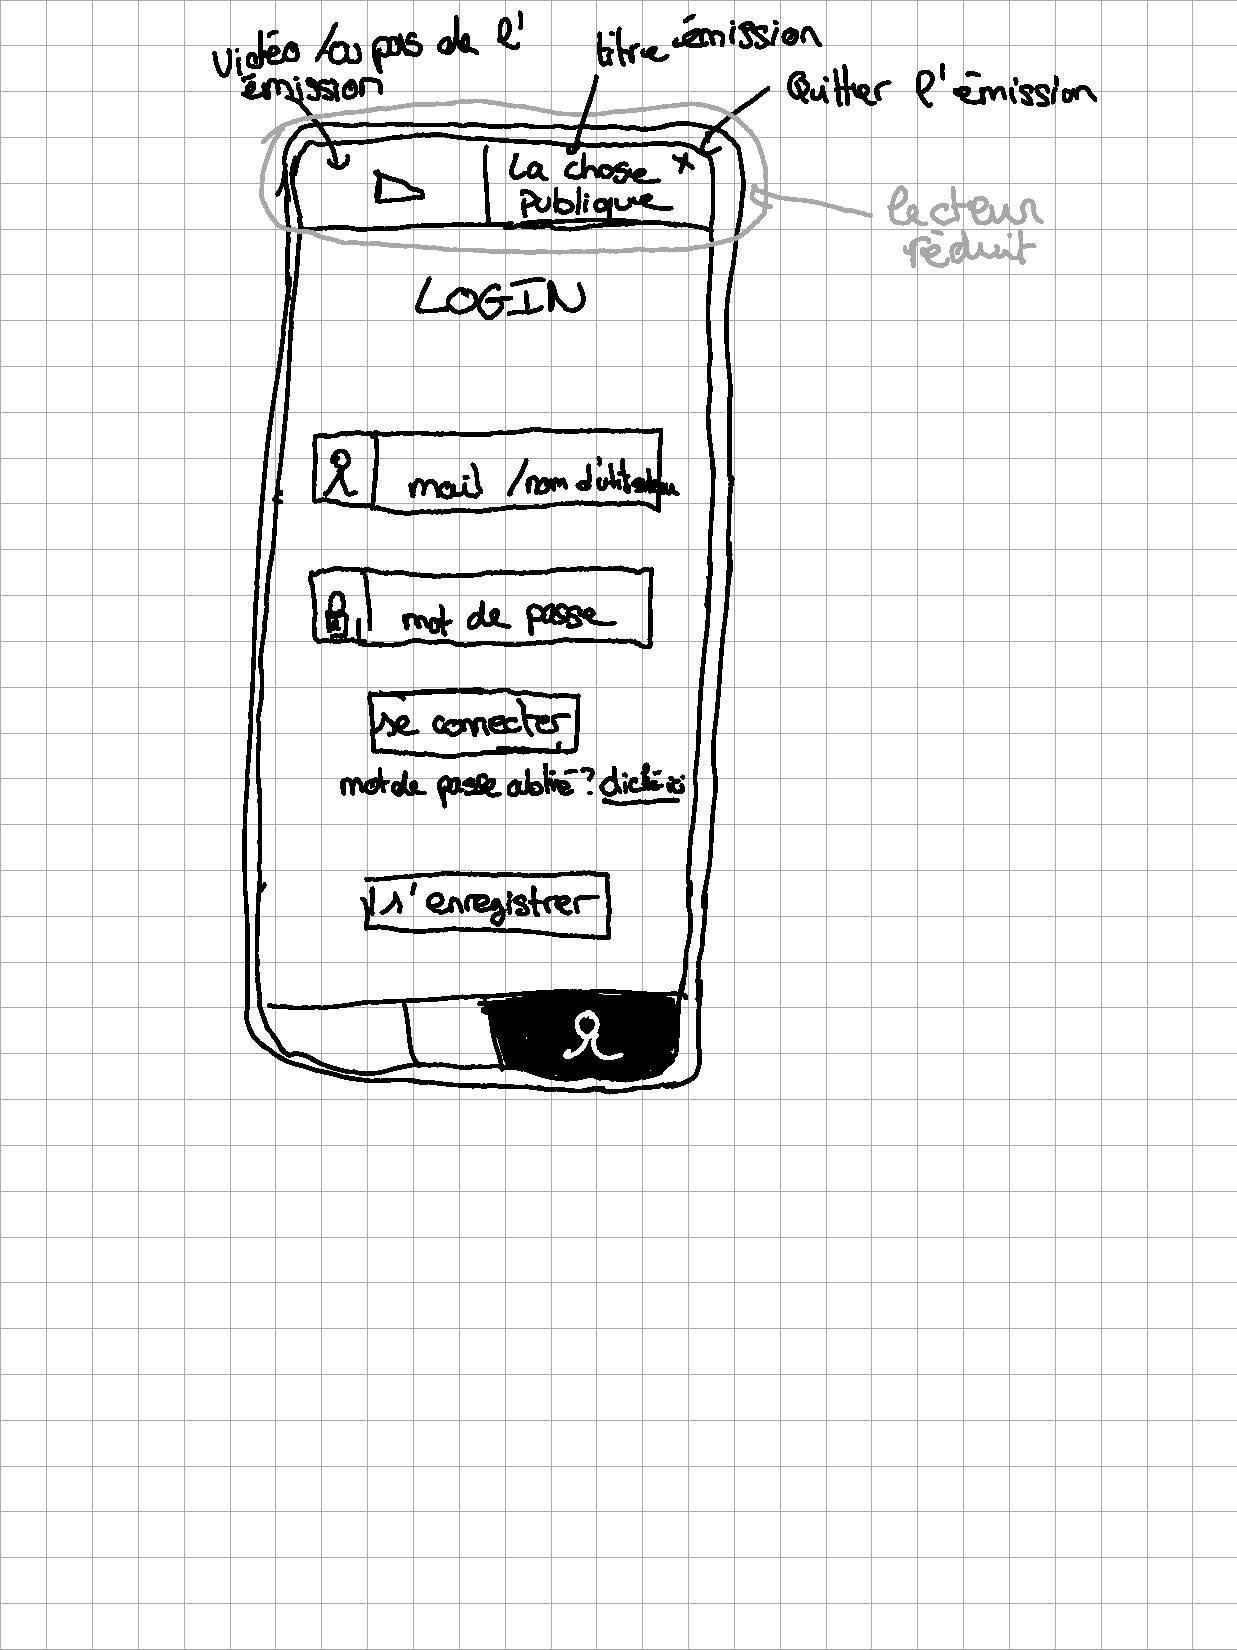 vidéo /ou pas de l'
émission
titre émission
Quitter l'émission
La chose
Publique
x
lecteur
réduit
LOGIN
mail /nom d'utilisateur
mot de passe
se connecter
mot de passe oblié?
s'enregistrer